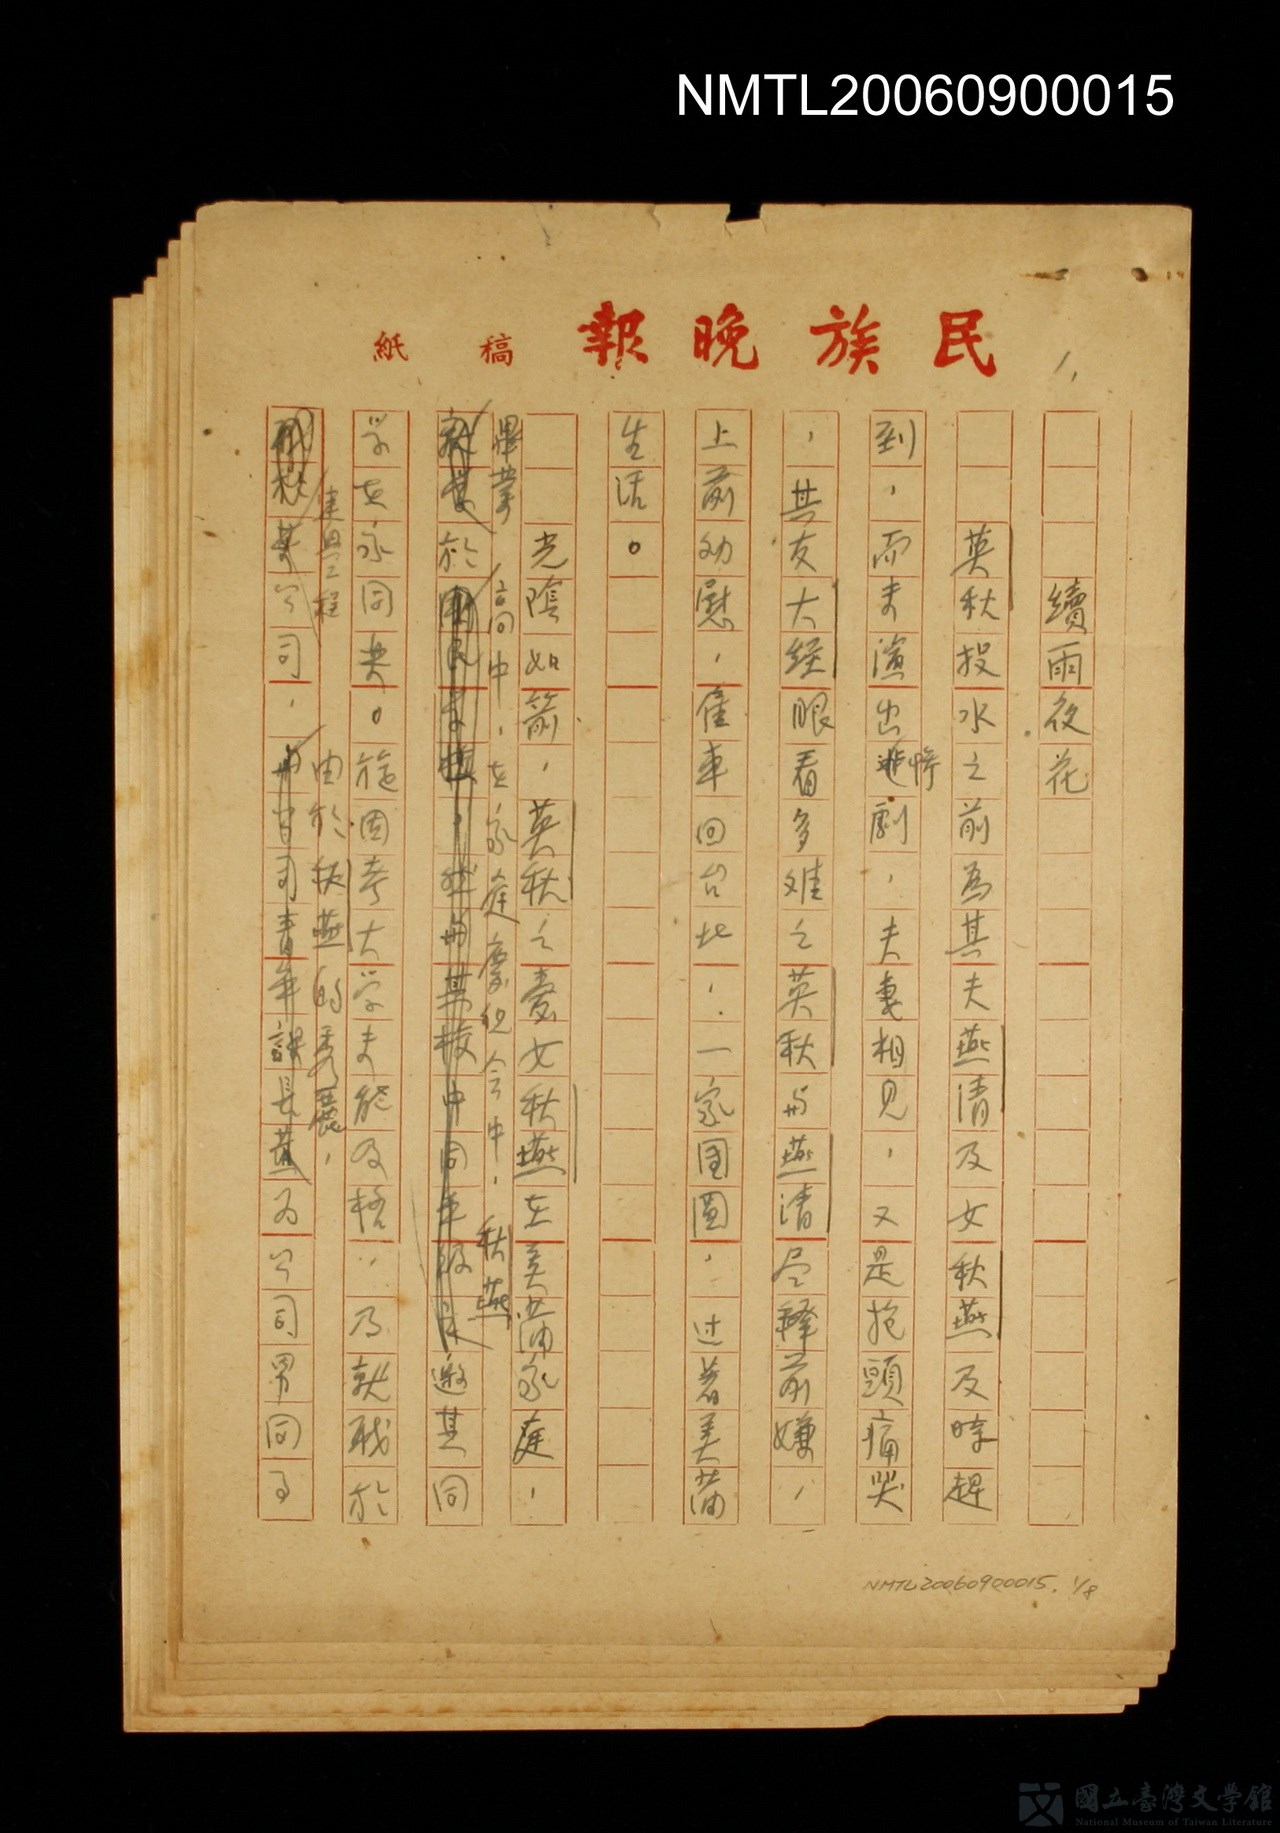 NMTL20060900015
民族晚報 稿紙
1.
續雨夜花
英秋投水之前為其夫燕清及女秋燕及時趕
到，而未演出悲慘劇，夫妻相見，又是抱頭痛哭
，其友大經眼看多难之英秋与燕清尽释前嫌，
上前劝慰，僱車回台北，一家团圓，过着美萳
生活。
光陰如箭，英秋之愛女秋燕在美萳家庭，
畢業高中，在家庭慶祝会中，秋燕
於邀其同
学在家同楽。旋因考大学未能及格，乃就职於
建興工程
公司，由於秋燕的秀麗，
为公司男同事
NMTL20060900015. 1/8
國立臺灣文學館
National Museum of Taiwan Literature